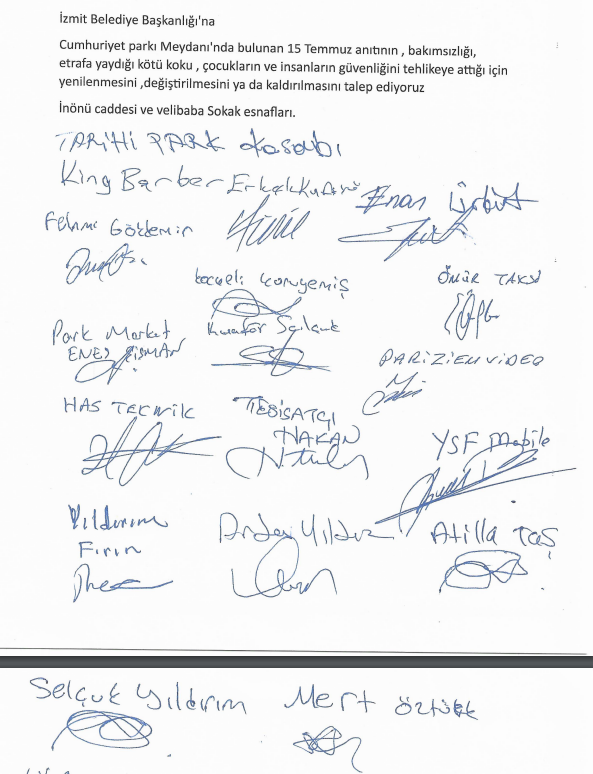 İzmit Belediye Başkanlığı'na
Cumhuriyet parkı Meydanı'nda bulunan 15 Temmuz anıtının , bakımsızlığı,
etrafa yaydığı kötü koku , çocukların ve insanların güvenliğini tehlikeye attığı için
yenilenmesini ,değiştirilmesini ya da kaldırılmasını talep ediyoruz
İnönü caddesi ve velibaba Sokak esnafları.
TARİHİ PARK Kasabı
King Barber Erkek Kuaförü
Enan
Fehmi Gözdemir
Kocaeli Kuruyemiş
ÖMÜR TAKSİ
Park Market
ENES ŞİŞMAN
Kuaför Selçuk
PARİZİEN VİDEO
HAS TEKNİK
TESİSATÇI
HAKAN
YSF Mobile
Yıldırım
Fırın
Yıldız
Atilla Taş
Selçuk Yıldırım
Mert Öztürk